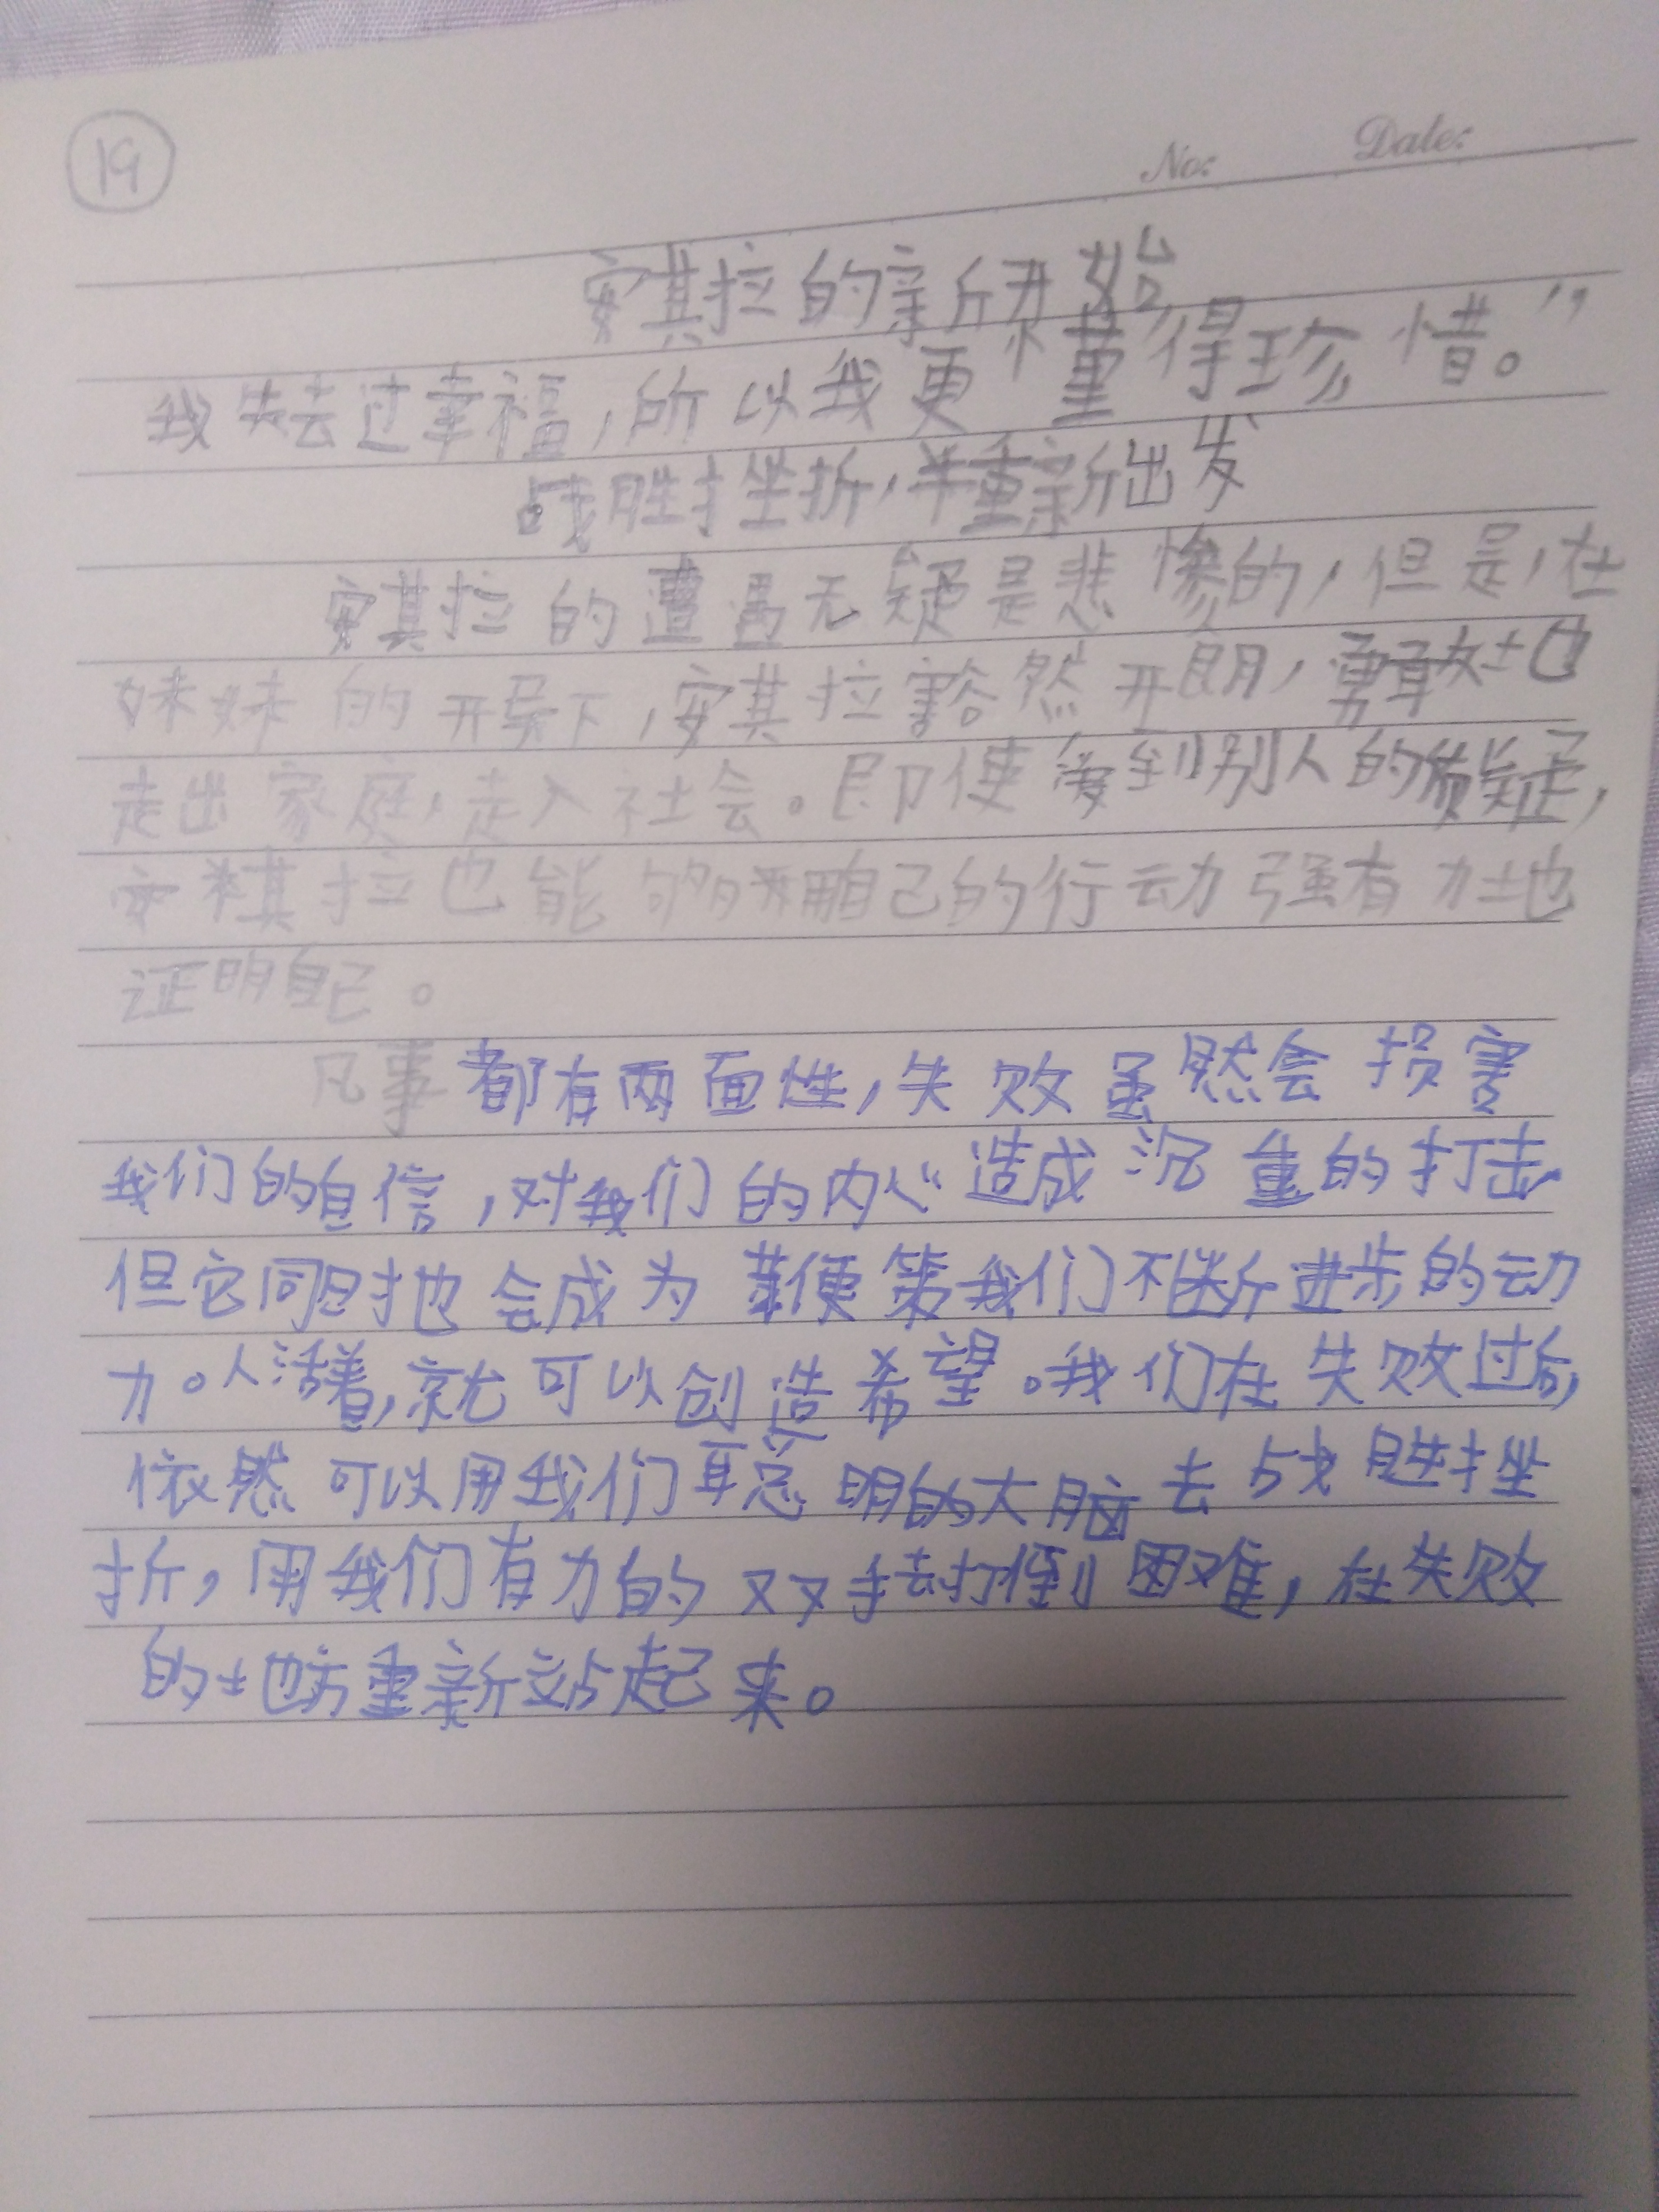 19
No: Date:
安其拉的新开始
我失去过幸福，所以我更懂得珍惜。”
战胜挫折，并重新出发
安其拉的遭遇无疑是悲惨的，但是，在
妹妹的开导下，安其拉豁然开朗，勇敢地
走出家庭，走入社会。即使受到别人的质疑，
安其拉也能够用自己的行动强有力地
证明自己。
凡事都有两面性，失败虽然会损害
我们的自信，对我们的内心造成沉重的打击
但它同时也会成为鞭策我们不断进步的动
力。人活着，就可以创造希望。我们在失败过后，
依然可以用我们聪明的大脑去战胜挫
折，用我们有力的双手去打倒困难，在失败
的地方重新站起来。